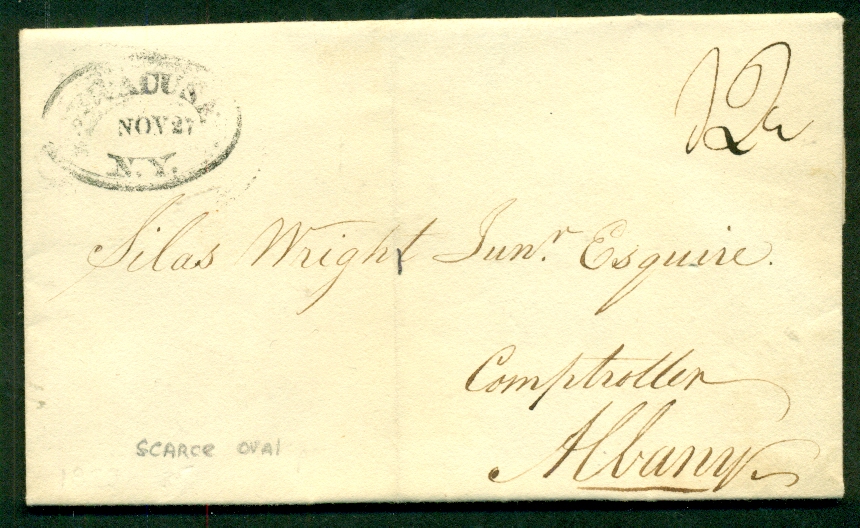 NOV 27
N.Y.
12½
Silas Wright Junr Esquire.
Comptroller
Albany
SCARCE OVAL